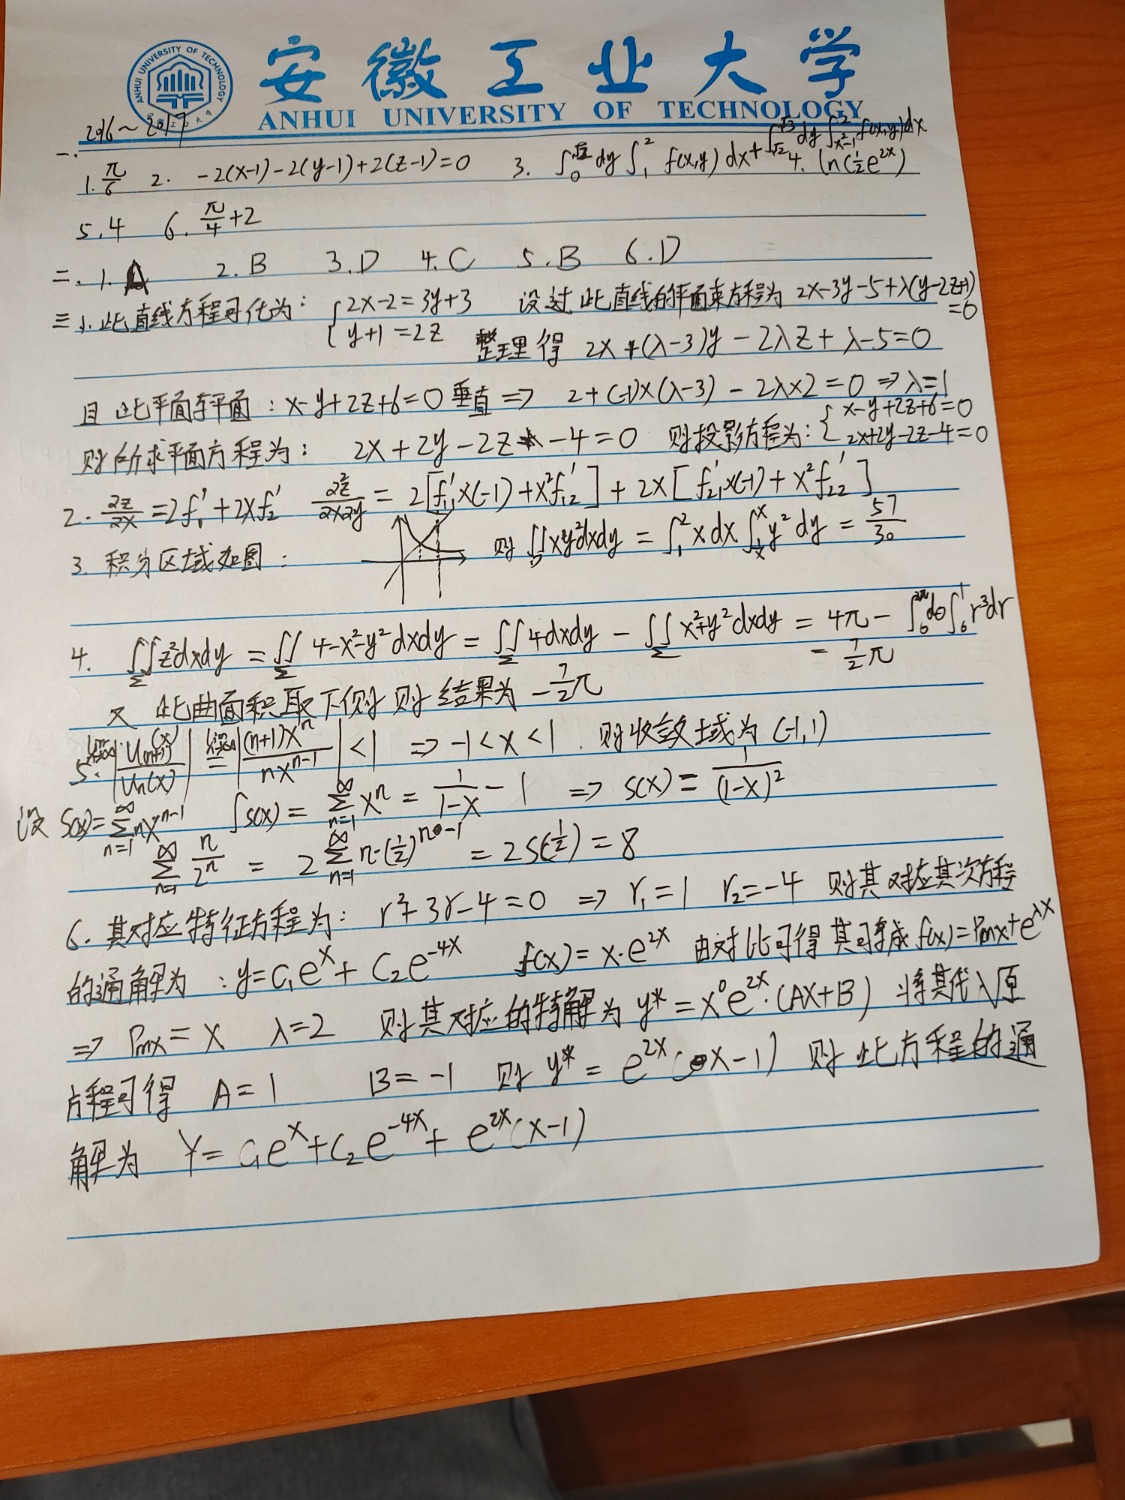 安徽工业大学
ANHUI UNIVERSITY OF TECHNOLOGY
ANHUI UNIVERSITY OF TECHNOLOGY
2016~2017
一. 1. π/6 2. -2(x-1)-2(y-1)+2(z-1)=0 3. ∫₀^√2 dy ∫₁² f(x,y) dx + ∫_√2^√3 dy ∫_{x²-1}^2 f(x,y)dx 4. ln(½e^{2x})
5. 4 6. π/4+2
二. 1. A 2. B 3. D 4. C 5. B 6. D
三 1. 此直线方程可化为: {2x-2=3y+3 y+1=2z 设过此直线的平面束方程为 2x-3y-5+λ(y-2z+1)=0
整理得 2x+(λ-3)y-2λz+λ-5=0
且此平面与平面: x-y+2z+6=0 垂直 ⇒ 2+(-1)×(λ-3)-2λ×2=0 ⇒λ=1
则所求平面方程为: 2x+2y-2z-4=0 则投影方程为: {x-y+2z+6=0 2x+2y-2z-4=0
2. ∂z/∂x=2f₁'+2xf₂' ∂²z/∂x∂y=2[f₁'×(-1)+x²f₁₂']+2x[f₂₁'×(-1)+x²f₂₂']
3. 积分区域如图: 则 ∬xy²dxdy=∫₁²xdx∫_{1/x}^x y²dy=57/30
4. ∬_Σ z²dxdy=∬_Σ 4-x²-y²dxdy=∬_Σ 4dxdy-∬_Σ x²+y²dxdy=4π-∫₀^{2π}dθ∫₀¹r³dr
=7/2π
又 此曲面积取下侧 则结果为 -7/2π
5. lim|U_{n+1}(x)/Un(x)|=lim|(n+1)xⁿ/nx^{n-1}|<1 ⇒ -1<x<1. 则收敛域为 (-1,1)
设 S(x)=∑_{n=1}^∞ nx^{n-1} ∫s(x)=∑_{n=1}^∞ xⁿ=1/(1-x)-1 ⇒ s(x)=1/(1-x)²
∑_{n=1}^∞ n/2ⁿ=2∑_{n=1}^∞ n·(½)^{n-1}=2S(½)=8
6. 其对应特征方程为: r²+3r-4=0 ⇒ r₁=1 r₂=-4 则其对应其次方程
的通解为: y=C₁e^x+C₂e^{-4x} f(x)=x·e^{2x} 由对比可得其可写成 f(x)=Pmx+e^{λx}
⇒ Pmx=x λ=2 则其对应的特解为 y*=x⁰e^{2x}·(Ax+B) 将其代入原
方程可得 A=1 B=-1 则 y*=e^{2x}(x-1) 则此方程的通
解为 Y=C₁e^x+C₂e^{-4x}+e^{2x}(x-1)